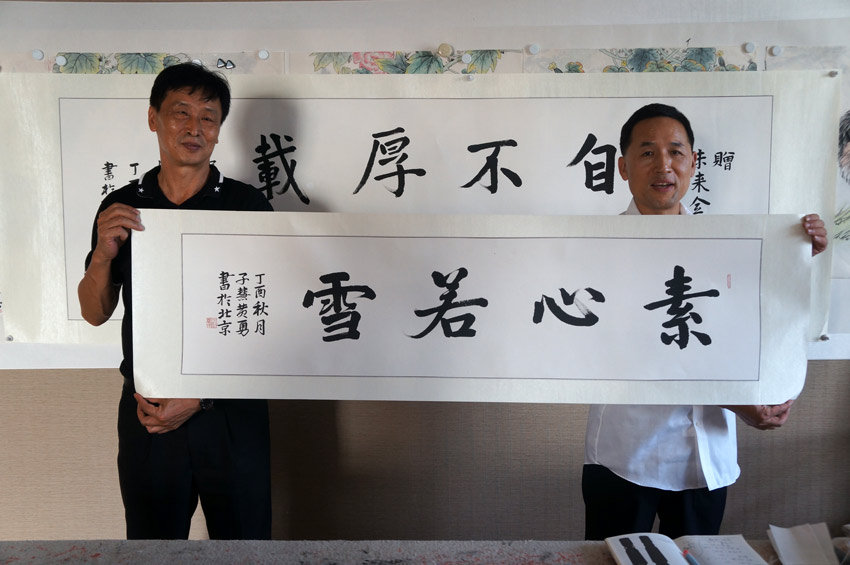 贈
自不厚載
丁
書於
素心若雪
丁酉秋月
子慧黄勇
書於北京